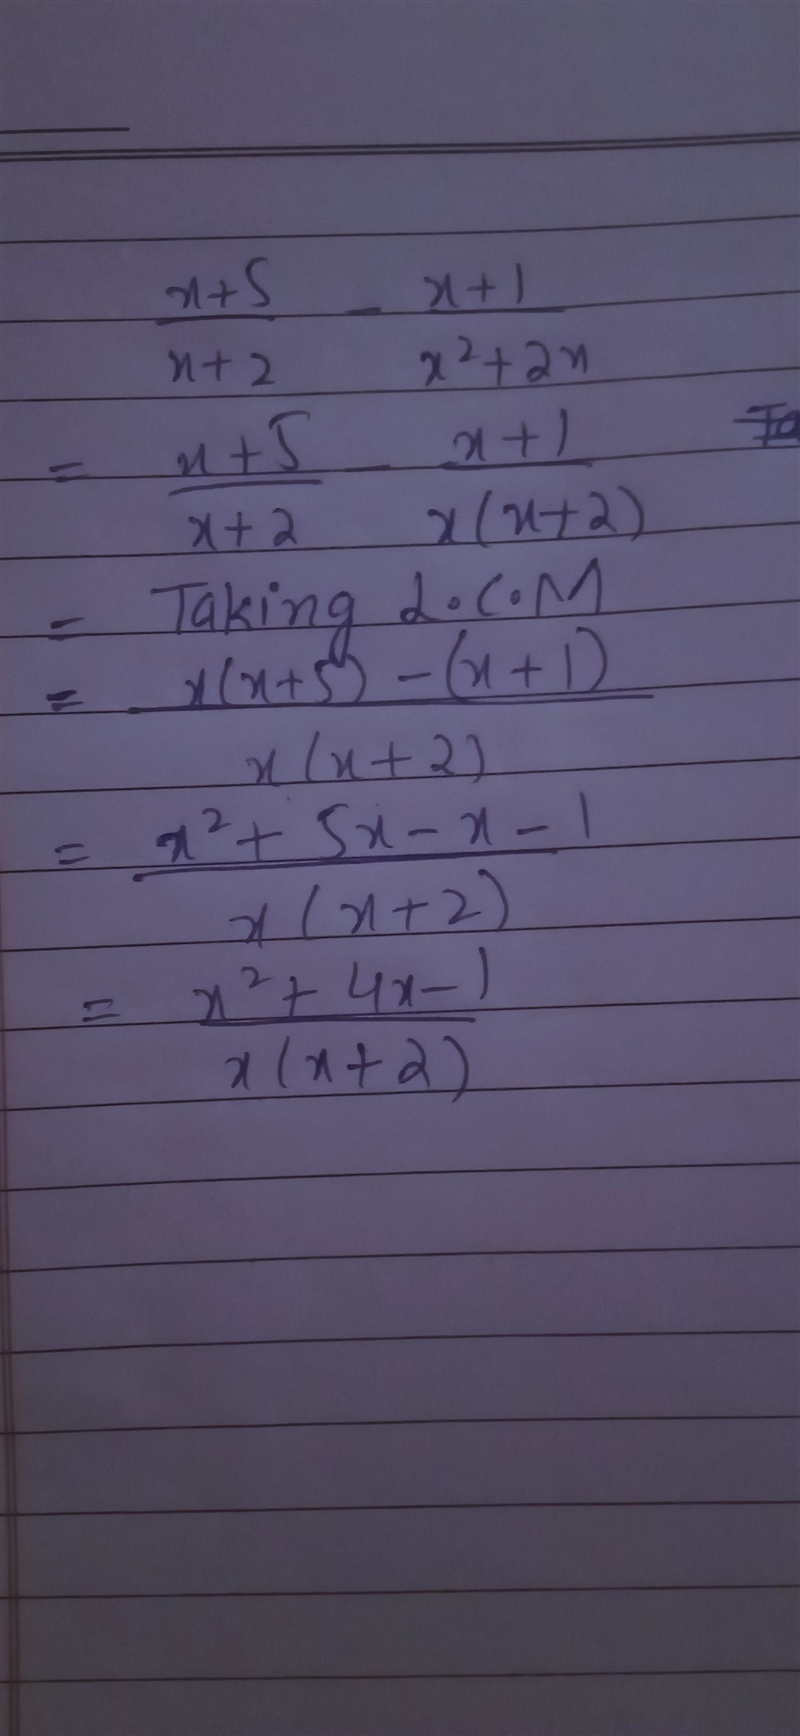 x+5/x+2 - x+1/x²+2x
= x+5/x+2 - x+1/x(x+2) Ta
= Taking L.C.M
= x(x+5) - (x+1)/x(x+2)
= x²+ 5x - x - 1/x(x+2)
= x²+ 4x - 1/x(x+2)